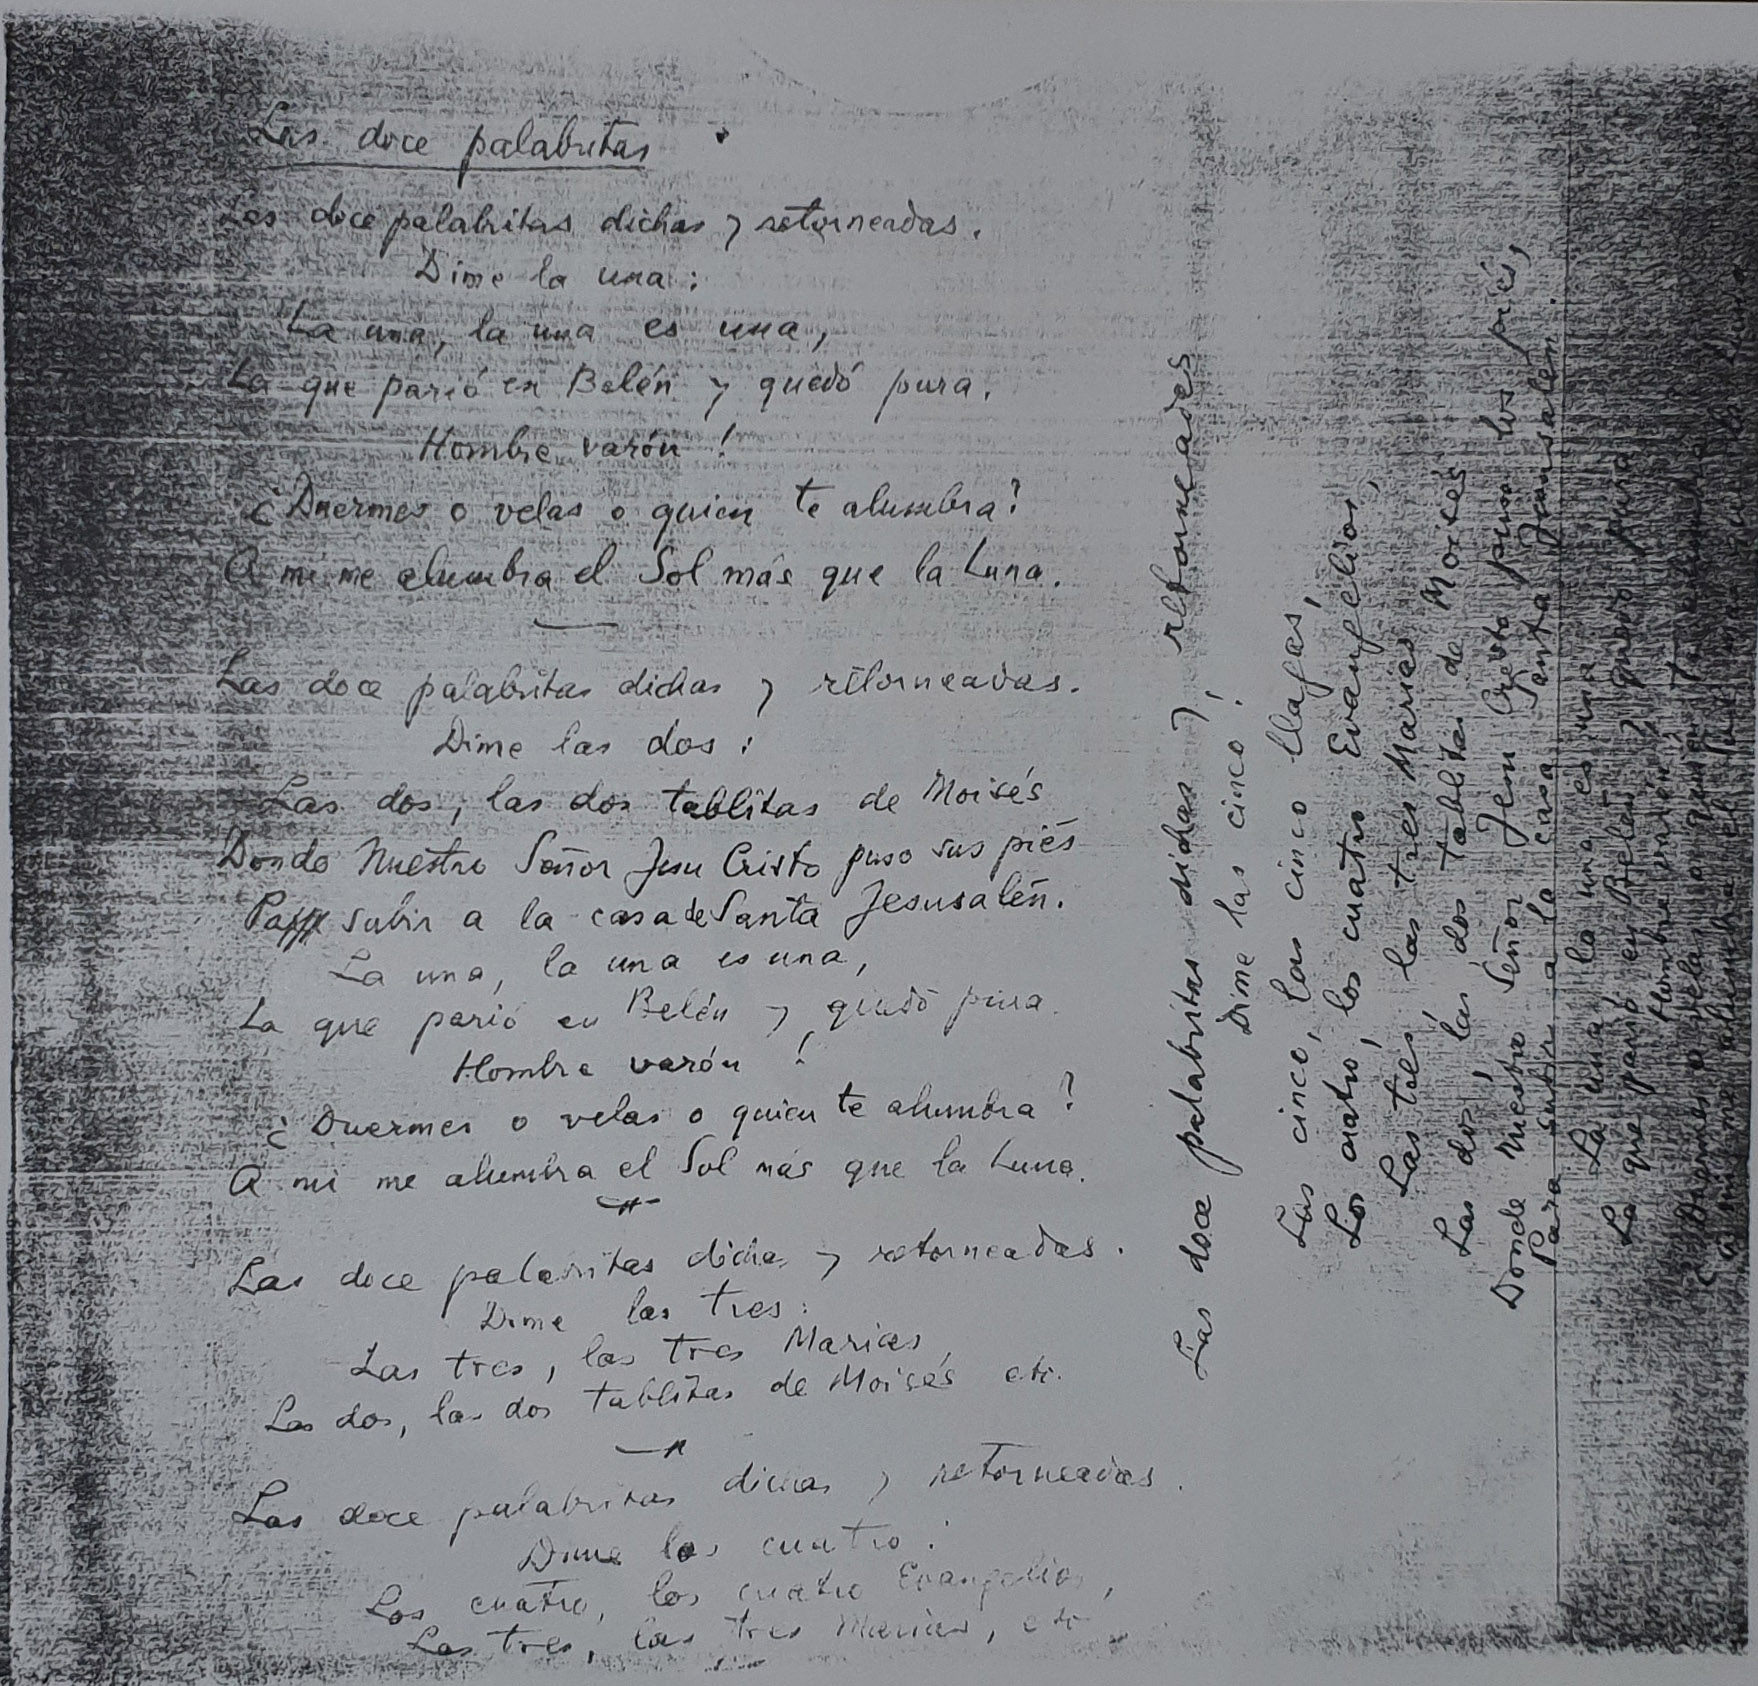 Las doce palabritas
Las doce palabritas dichas y retorneadas.
Dime la una:
La una, la una es una,
La que parió en Belén y quedó pura.
Hombre varón!
¿Duermes o velas o quien te alumbra?
A mi me alumbra el Sol más que la Luna.
Las doce palabritas dichas y retorneadas.
Dime las dos:
Las dos, las dos tablitas de Moisés
Donde Nuestro Señor Jesu Cristo puso sus piés
Para subir a la casa de Santa Jesusalén.
La una, la una es una,
La que parió en Belén y quedó pura.
Hombre varón!
¿Duermes o velas o quien te alumbra?
A mi me alumbra el Sol más que la Luna.
Las doce palabritas dichas y retorneadas.
Dime las tres:
Las tres, las tres Marias,
Las dos, las dos tablitas de Moisés etc.
Las doce palabritas dichas y retorneadas.
Dime los cuatro:
Los cuatro, los cuatro Evangelios,
Las tres, las tres Marias, etc
Las doce palabritas dichas y retorneades
Dime las cinco!
Las cinco, las cinco llagas,
Los cuatro, los cuatro Evangelios,
Las tres, las tres Marias
Las dos, las dos tablitas de Moisés
Donde Nuestro Señor Jesu Cristo puso los piés,
Para subir a la casa Santa Jerusalén.
La una, la una es una
La que parió en Belén y quedó pura
Hombre varón!
¿Duermes o velas o quien Te alumbra
A mi me alumbra el Sol más que la Luna